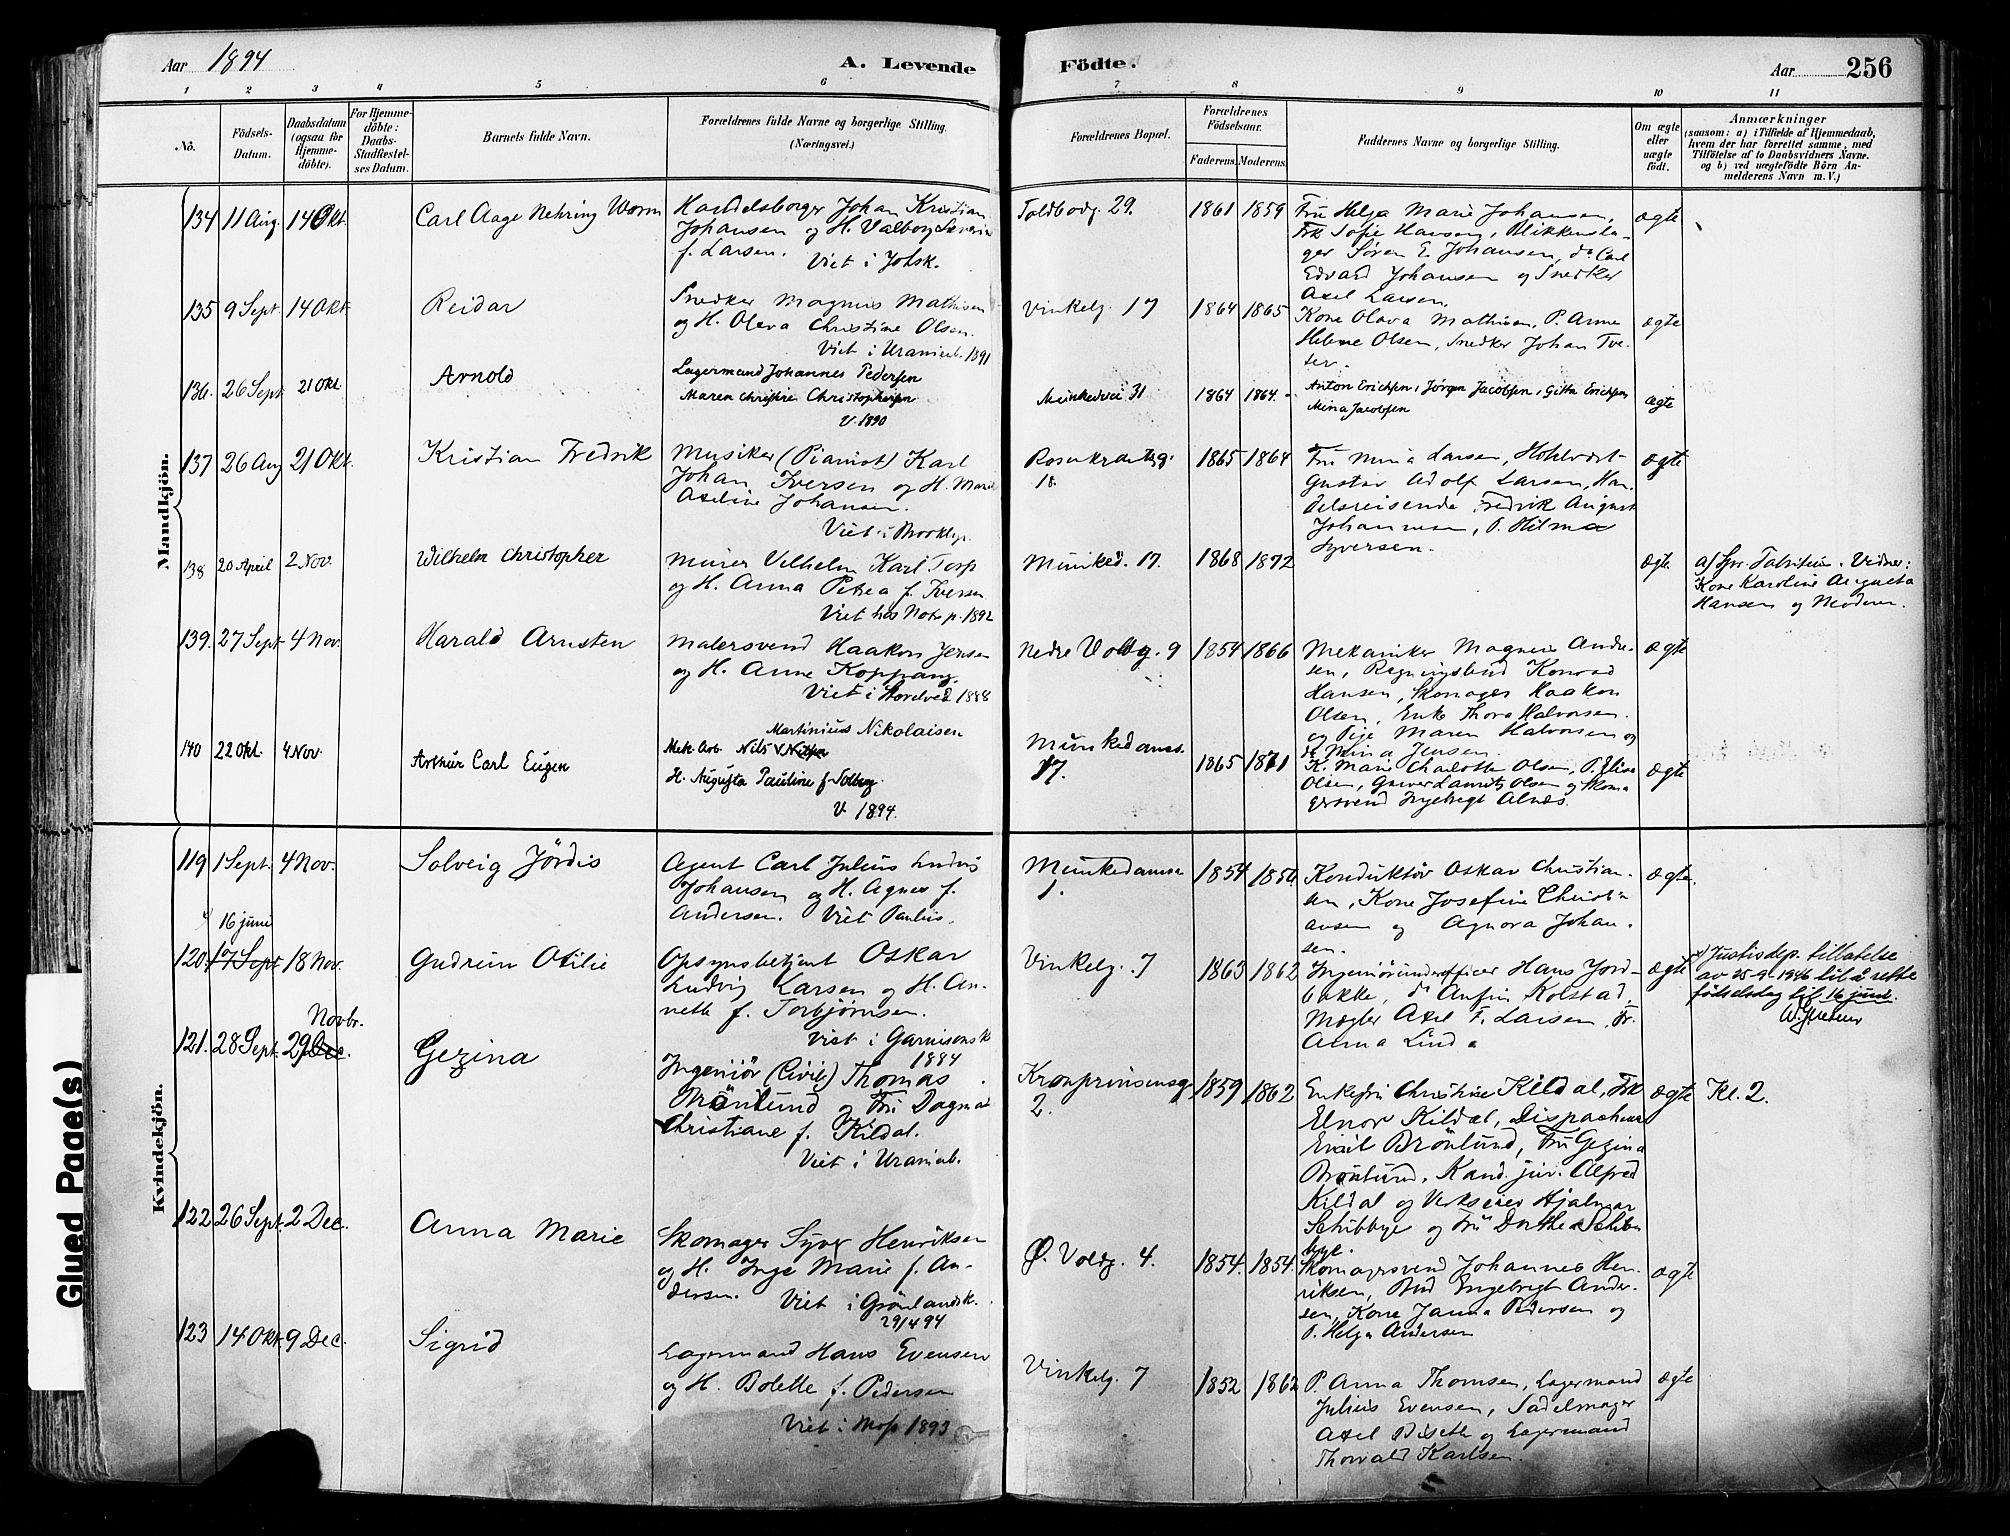 Aar 1894
A. Levende Födte.
Aar 256
1 2 3 4 5 6 7 8 9 10 11
No.
Födsels-
Datum.
Daabsdatum
(ogsaa for
Hjemme-
döbte).
For Hjemme-
döbte:
Daabs-
Stadfæstel-
ses Datum.
Barnets fulde Navn.
Forældrenes fulde Navne og borgerlige Stilling.
(Næringsvei.)
Forældrenes Bopæl.
Forældrenes
Födselsaar.
Faderens. Moderens.
Faddernes Navne og borgerlige Stilling.
Om ægte
eller
uægte
födt.
Anmærkninger
(saasom: a) i Tilfælde af Hjemmedaab,
hvem der har forrettet samme, med
Tilföielse af to Daabsvidners Navne.
og b) ved uægtefödte Börn An-
melderens Navn m. V.)
Mandkjön.
134 11 Aug. 14 Okt. Carl Aage Nehring Worm
Handelsborger Johan Kristian
Johansen og H. Valborg Severine
f. Larsen. Viet i Johsk.
Toldbodg. 29. 1861 1859
Fru Helga Marie Johansen,
Frk Sofie Hansen, Blikkensla-
ger Sören E. Johansen, do Carl
Edvard Johansen og Snedker
Axel Larsen.
ægte
135 9 Sept. 14 Okt. Reidar
Snedker Magnus Mathisen
og H. Olava Christine Olsen.
Viet i Uranienb. 1891
Vinkelg. 17 1864 1865
Kone Olava Mathisen, P. Anne
Helene Olsen, Snedker Johan Tve-
ter.
ægte
136. 26 Sept 21 Okt. Arnold
Lagermand Johannes Pedersen
Maren Christine Christophersen
V. 1890
Munkedvei 31 1864 1864.
Anton Erichsen, Jörgen Jacobsen, Gitta Erichsen
Mina Jacobsen
ægte
137 26 Aug 21 Okt. Kristian Fredrik
Musiker (Pianist) Karl
Johan Iversen og H. Marie
Axeline Johansen.
Viet i Brooklyn.
Rosenkrantzg.
18. 1865 1864
Fru Mina Larsen,
Gustav Adolf Larsen, Han-
delsreisende Fredrik August
Johannesen, P. Hilma
Syversen.
ægte
138 20 April 2 Nov. Wilhelm Christopher
Murer Vilhelm Karl Torp
og H. Anna Petrea f. Iversen
Viet hos Not. p. 1892
Munked. 17. 1868 1872
ægte
a) Spr. Fabritius. Vidner:
Kone Karoline Augusta
Hansen og Moderen.
139. 27 Sept 4 Nov. Harald Arnsten
Malersvend Haakon Jensen
og H. Anne Koppang.
Viet i Hordved 1888
Nedre Voldg. 9 1854 1866
Mekaniker Magnus Andre-
sen, Regningsbud Konrad
Hansen, Skomager Haakon
Olsen, Enke Thora Halvorsen
og Pige Maren Halvorsen og
do Mina Jensen.
ægte
140 22 Okt. 4 Nov. Arthur Carl Eugen
Martinius Nikolaisen
Mek. Arb. Nils
H. Augusta Pauline f. Solberg
V. 1894.
Munkedamsv.
17. 1865 1871
K. Marie Charlotte Olsen, P. Elise
Olsen, Graver Lauritz Olsen og Skoma
gersvend Ingebregt Alnæs.
ægte
Kvindekjön.
119 1 Sept. 4 Nov. Solveig Jördis
Agent Carl Julius Ludvig
Johansen og H. Agnes f.
Andersen. Viet Paulus.
Munkedamsv
1. 1854 1856
Konduktör Oskar Christian-
sen, Kone Josefine Christi-
ansen og Agnora Johan-
sen.
ægte.
16 juni
120. 17 Sept 18 Nov. Gudrun Otilie
Opsynsbetjent Oskar
Ludvig Larsen og H. An-
nette f. Torbjörnsen.
Viet i Garnisonsk
1884
Vinkelg. 7 1863 1862
Ingeniörunderofficer Hans Jord-
bakke, do Anfin Kolstad,
Mægler Axel F. Larsen, Fr.
Anna Linda
ægte
x) Justisdep. tillatelse
av 25-9-1946 til å rette
fødselsdag til 16 juni.
Novbr.
121. 28 Sept. 29 Dec. Gezina
Ingeniör (Civil) Thomas
Brönlund og Fru Dagmar
Christiane f. Kildal.
Viet i Uranienb.
Kronprinsensg
2. 1859 1862
Enkefru Christine Kildal, Frk
Elnor Kildal, Dispacheur
Emil Brönlund, Fru Gezina
Brönlund, Kand. jur. Alfred
Kildal og Verkseier Hjalmar
Schibbye og Fru Dorthea Schib-
bye.
ægte Kl. 2.
122 26 Sept. 2 Dec. Anna Marie
Skomager Syver Henriksen
og H. Inge Marie f. An-
dersen. Viet i Grönlandsk.
29/4 94
Ø. Voldg. 4. 1854. 1854.
Skomagersvend Johannes Hen-
riksen, Bud Engebregt Ander-
sen, Kone Janna Pedersen og
P. Helga Andersen
ægte
123 14 Okt. 9 Dec. Sigrid
Lagermand Hans Evensen
og H. Bolette f. Pedersen
Viet i Moss 1893
Vinkelg. 7 1852 1862
P. Anna Thomsen, Lagermand
Julius Evensen, Sadelmager
Axel Biseth og Lagermand
Thorvald Karlsen.
ægte
Glued Page(s)